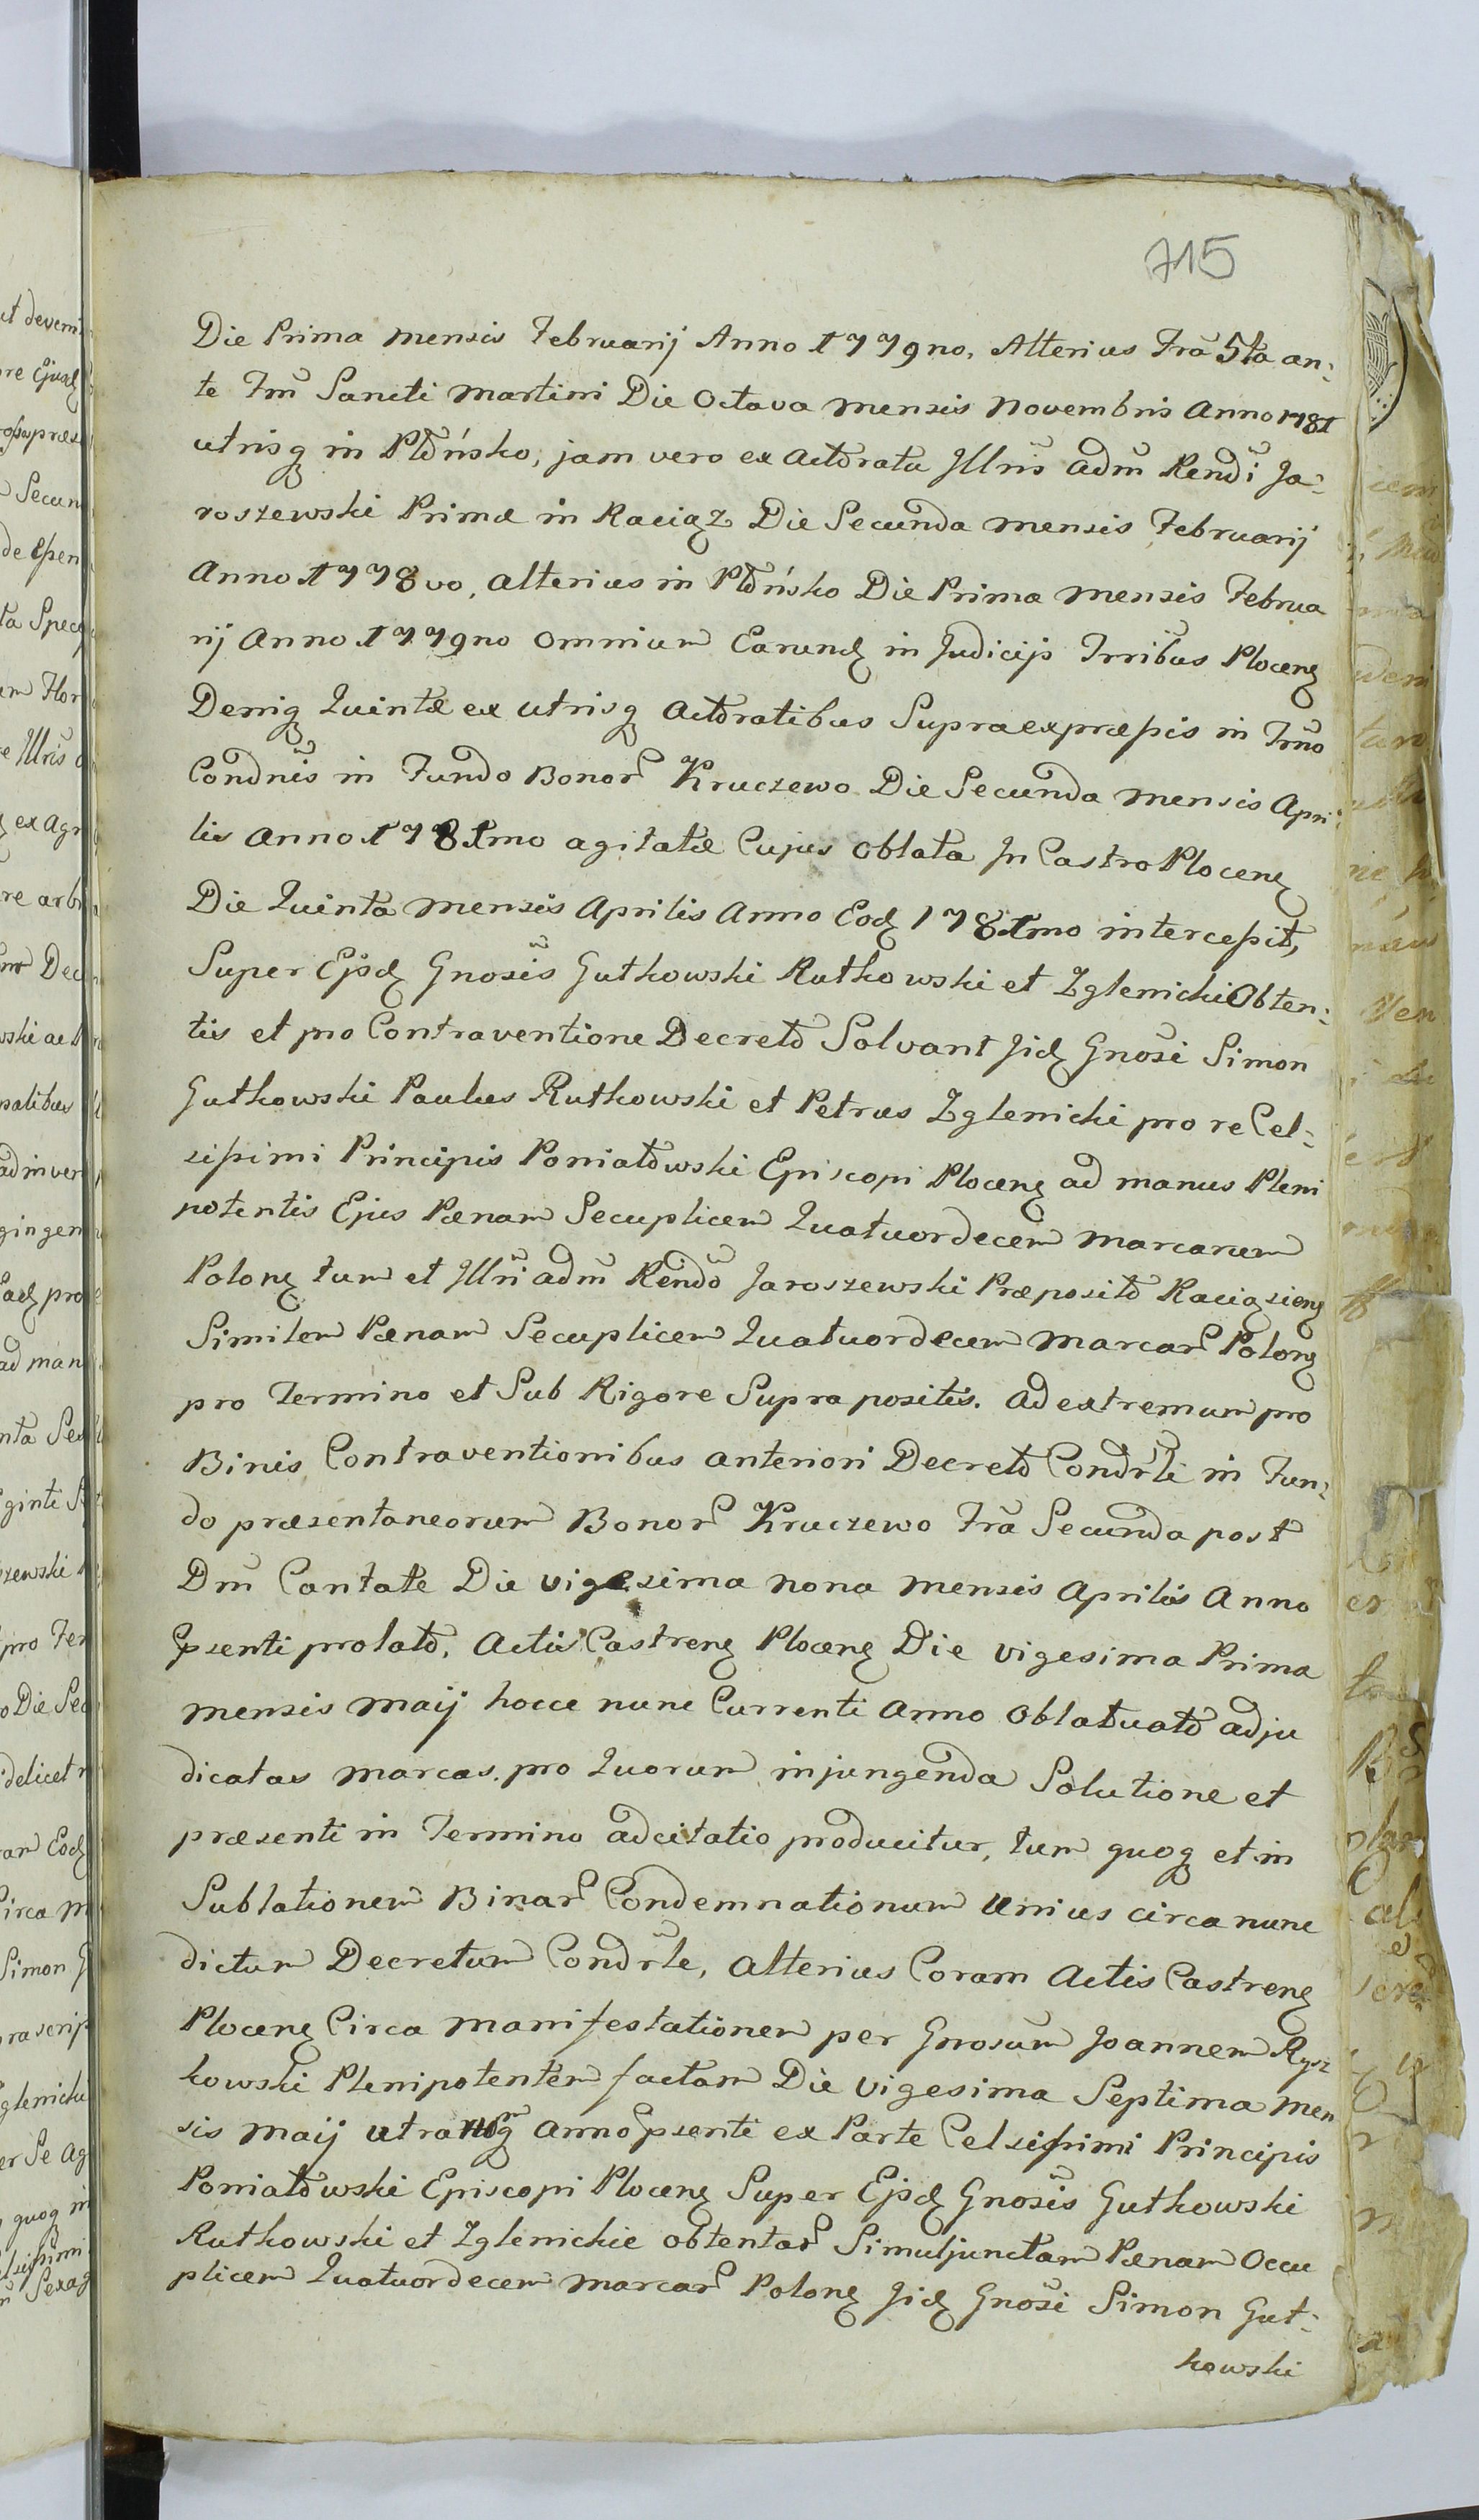 715
Die Prima mensis Februarij Anno 1779no, Alterius Fra 5ta an:
te Fm̃ Sancti Martini Die Octava mensis Novembris Anno 1781
utrisq in Płońsko, jam vero ex Actoratu Jllr̃is adm̃ Rendi Ja:
roszewski Primæ in Raciąz Die Secunda mensis Februarij
Anno 1778vo, alterius in Płońsko Die Prima mensis Februa
rij Anno 1779no omnium Earundꝫ in Judicijs Trribus Plocenꝫ
Deniq Quintæ ex utrisq actoratibus Supraexpræssis in Trno
Condnis in Fundo Bonor Kruczewo Die Secunda mensis Apri:
lis Anno 1781mo agitatæ Cujus oblata Jn Castro Plocenꝫ
Die Quinta mensis Aprilis Anno Eodꝫ 1781mo intercessit,
Super Ejsdꝫ Gnosis Gutkowski Rutkowski et Zglenicki Obten:
tis et pro Contraventione Decreto Solvant Jidꝫ Gnosi Simon
Gutkowski Paulus Rutkowski et Petrus Zglenicki pro re Cel:
sissimi Principis Poniatowski Episcopi Plocenꝫ ad manus Pleni
potentis Ejus Pœnam Secuplicem Quatuordecem marcarum
Polonꝫ tum et Jllri adm̃ Rendo Jaroszewski Præposito Raciązienꝫ
Similem Pœnam Secuplicem Quatuordecem marcar Polonꝫ
pro Termino et Sub Rigore Supra positis. Ad extremum pro
Binis Contraventionibus anteriori Decreto Condr̃li in Fun:
do præsentaneorum Bonor Kruczewo Fra Secunda post
Dm̃ Cantate Die vigesima nona mensis Aprilis Anno
Psenti prolato, Actis Castrenꝫ Plocenꝫ Die vigesima Prima
mensis Maij hocce nunc Currenti Anno Oblatuato adju
dicatas marcas. pro Quorum injungenda Solutione et
præsenti in Termino adcitatio producitur, tum quoq et in
Sublationem Binar Condemnationum Unius circa nunc
dictum Decretum Condr̃le, alterius Coram Actis Castrenꝫ
Plocenꝫ Circa manifestationem per Gnosum Joannem Rysz
kowski Plenipotentem factam Die vigesima Septima men
sis Maij utramq Anno Psenti ex Parte Celsissimi Principis
Poniatowski Episcopi Plocenꝫ Super Ejsdꝫ Gnosis Gutkowski
Rutkowski et Zglenickie obtentar Simuljunctam Pœnam Occu
plicem Quatuordecem marcar Polonꝫ Jidꝫ Gnosi Simon Gut:
kowski